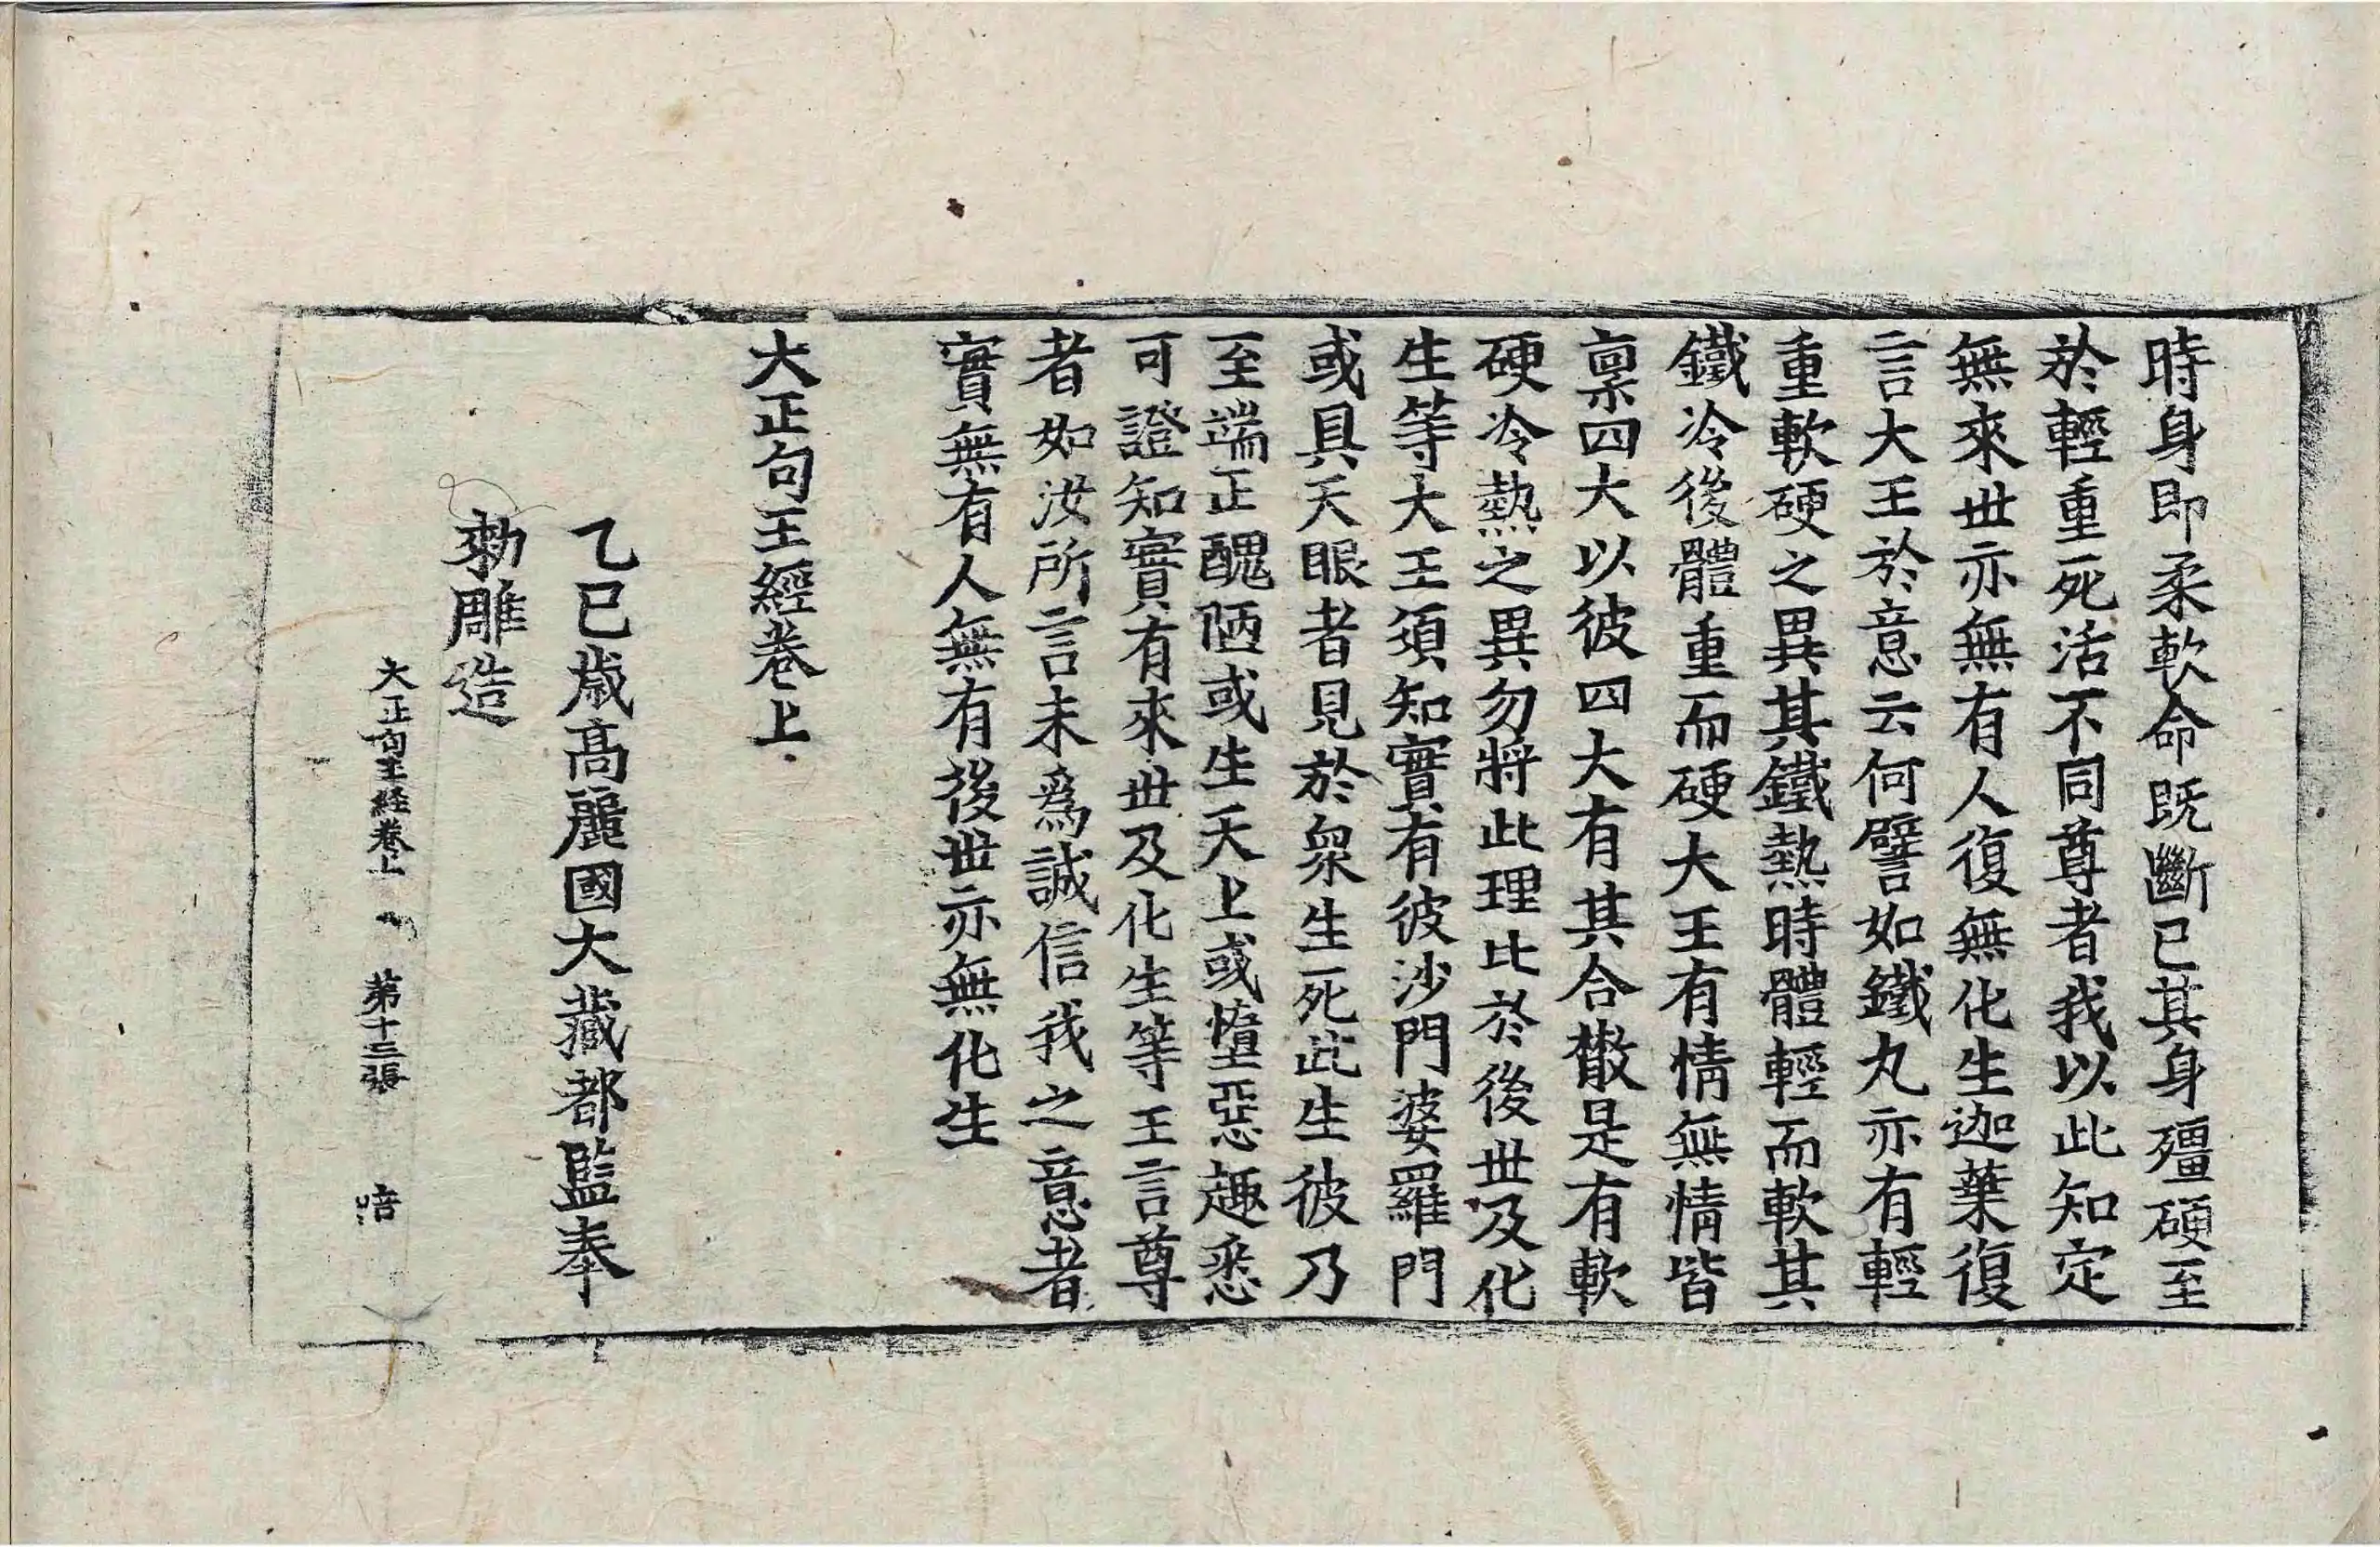 時身即柔軟命既斷已其身殭硬至
於輕重死活不同尊者我以此知定
無來世亦無有人復無化生迦葉復
言大王於意云何譬如鐵丸亦有輕
重軟硬之異其鐵熱時體輕而軟其
鐵冷後體重而硬大王有情無情皆
稟四大以彼四大有其合散是有軟
硬冷熱之異勿將此理比於後世及化
生等大王須知實有彼沙門婆羅門
或具天眼者見於衆生死此生彼乃
至端正醜陋或生天上或墮惡趣悉
可證知實有來世及化生等王言尊
者如汝所言未爲誠信我之意者
實無有人無有後世亦無化生
大正句王經卷上
乙巳歲高麗國大藏都監奉
勅雕造
大正句王經卷上 第十三張